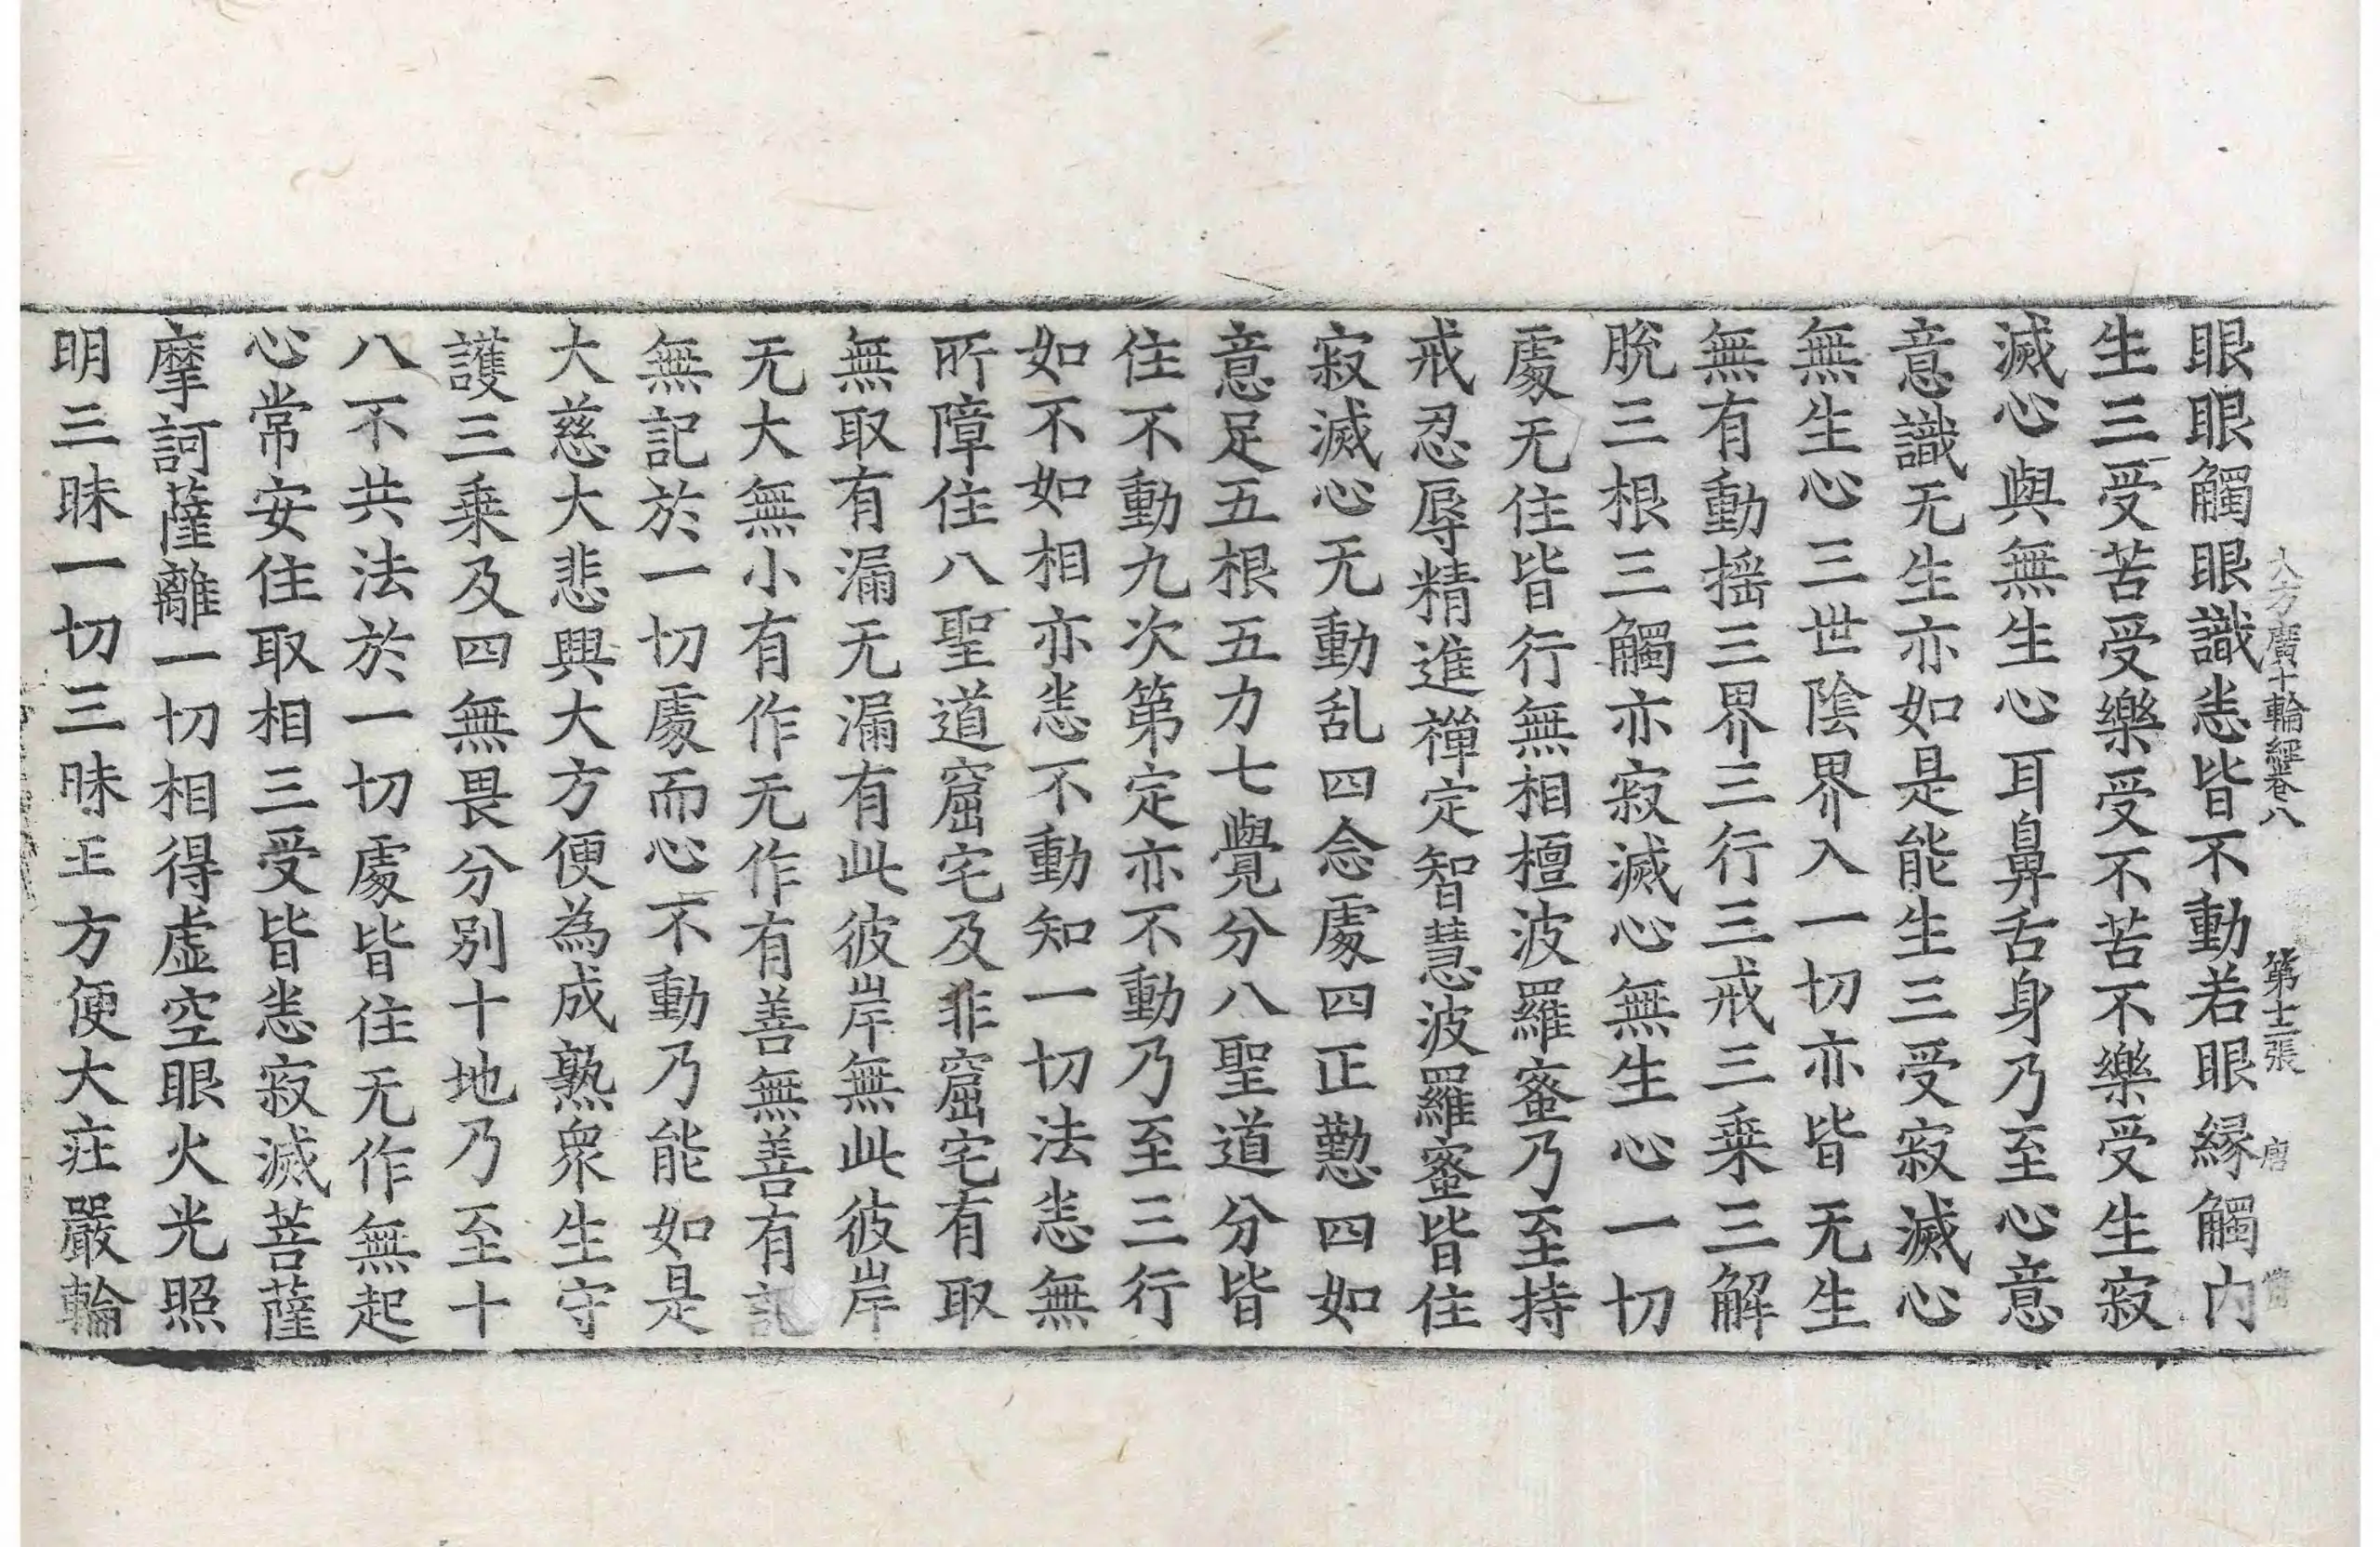 大方廣十輪經卷八 第十三張 唐
眼眼觸眼識恚皆不動若眼縁觸内
生三受苦受樂受不苦不樂受生寂
滅心與無生心耳鼻舌身乃至心意
意識无生亦如是能生三受寂滅心
無生心三世陰界入一切亦皆无生
無有動揺三界三行三戒三乗三解
脱三根三觸亦寂滅心無生心一切
處无住皆行無相檀波羅蜜乃至持
戒忍辱精進禪定智慧波羅蜜皆住
寂滅心无動乱四念處四正懃四如
意足五根五力七覺分八聖道分皆
住不動九次第定亦不動乃至三行
如不如相亦恚不動知一切法恚無
所障住八聖道窟宅及非窟宅有取
無取有漏无漏有此彼岸無此彼岸
无大無小有作无作有善無善有記
無記於一切處而心不動乃能如是
大慈大悲興大方便為成熟衆生守
護三乗及四無畏分别十地乃至十
八不共法於一切處皆住无作無起
心常安住取相三受皆恚寂滅菩薩
摩訶薩離一切相得虚空眼火光照
明三昧一切三昧王方便大疘嚴輪